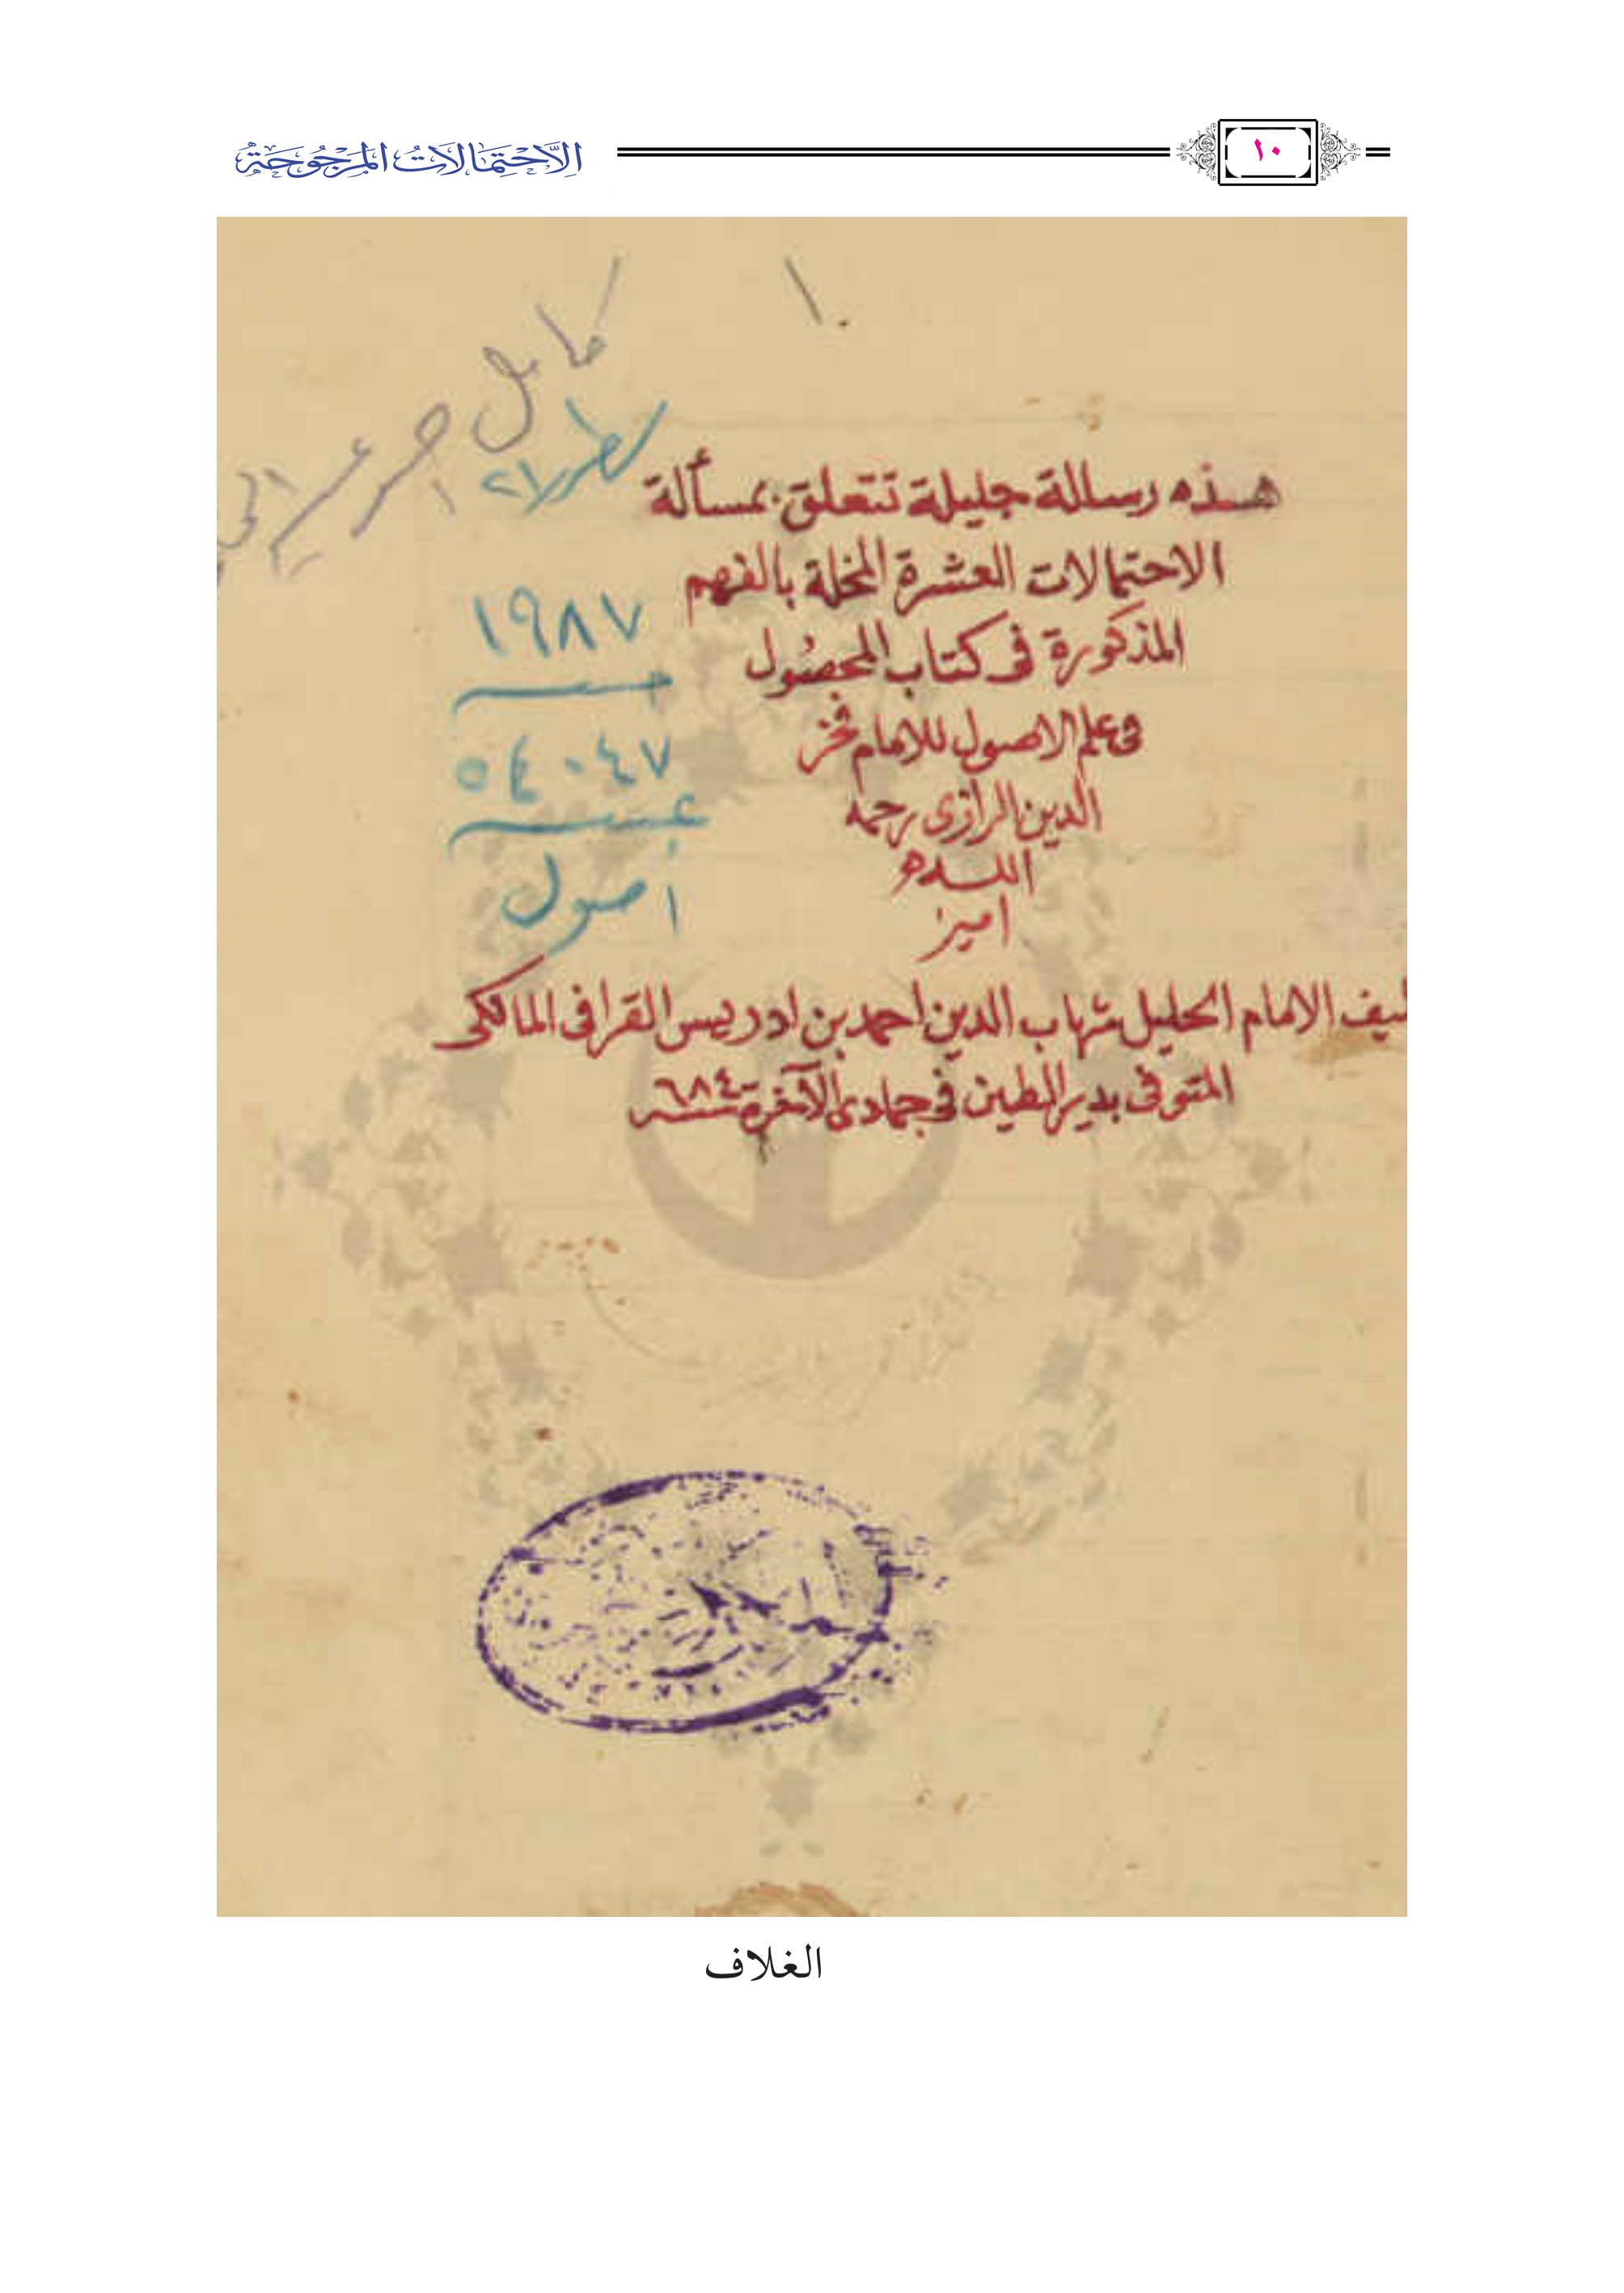 ١٠
الاحْتِمَالَاتُ المَرْجُوحَةُ
هذه رسالة جليلة تتعلق بمسألة
الاحتمالات العشرة المخلة بالفهم
المذكورة فى كتاب المحصُول
فى علم الاصول للامام فخر
الدين الرازى رحمه
اللـه
امين
ـيف الامام الجليل شهاب الدين احمد بن ادريس القرافى المالكى
المتوفى بدير الطين فى جمادى الآخرة ٦٨٤
١٩٨٧
٥٤٠٤٧
اصول
الغلاف